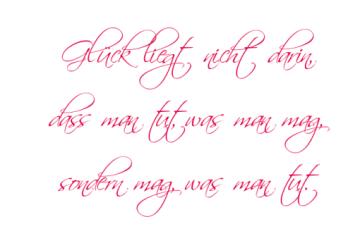 Glück liegt nicht darin,
dass man tut, was man mag,
sondern mag, was man tut.